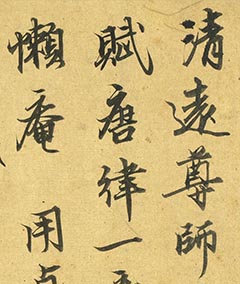 清遠尊師
賦唐律一
懶庵用